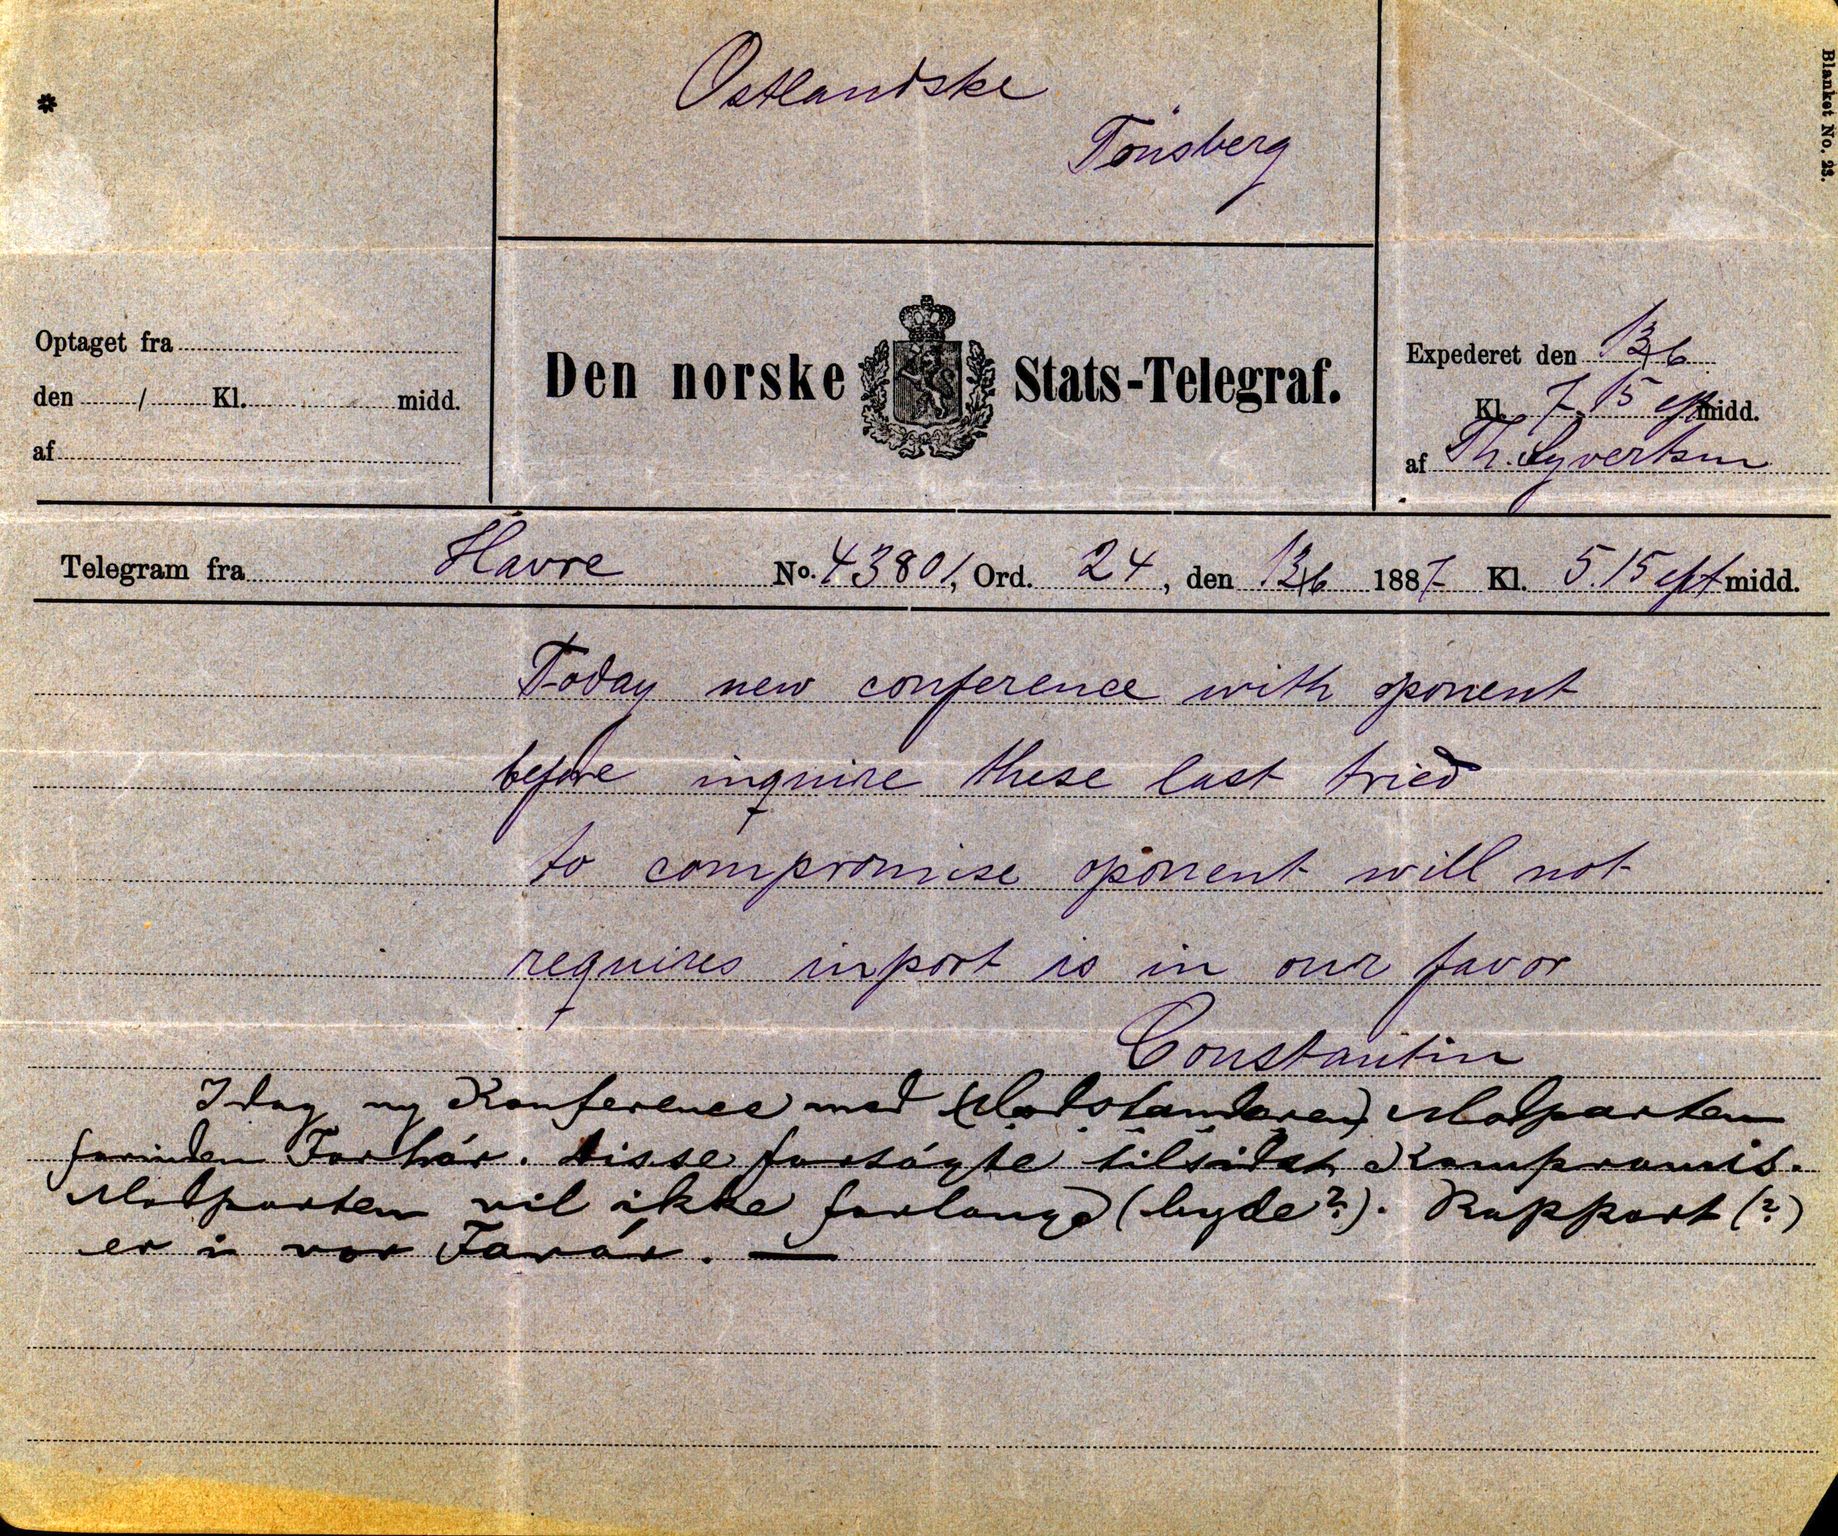 Ostlandske
Tönsberg
Blanket No. 23.
*
Optaget fra
den / Kl. midd.
af
Den norske Stats-Telegraf.
Expederet den 13/6
Kl. 7.15 eft midd.
af Th. Syvertsen
Telegram fra Havre No. 43801, Ord. 24, den 13/6 1887 Kl. 5.15 eft midd.
Today new conference with oponent
before inquire these last tried
to compromise oponent will not
requires inport is in our favor
Constantin
Idag ny Konference med (Modstanderen) Modparten
forinden Forhör. Disse forsögte tilsidst Kompromis.
Modparten vil ikke forlange (byde?). Rapport (?)
er i vor Favör. —